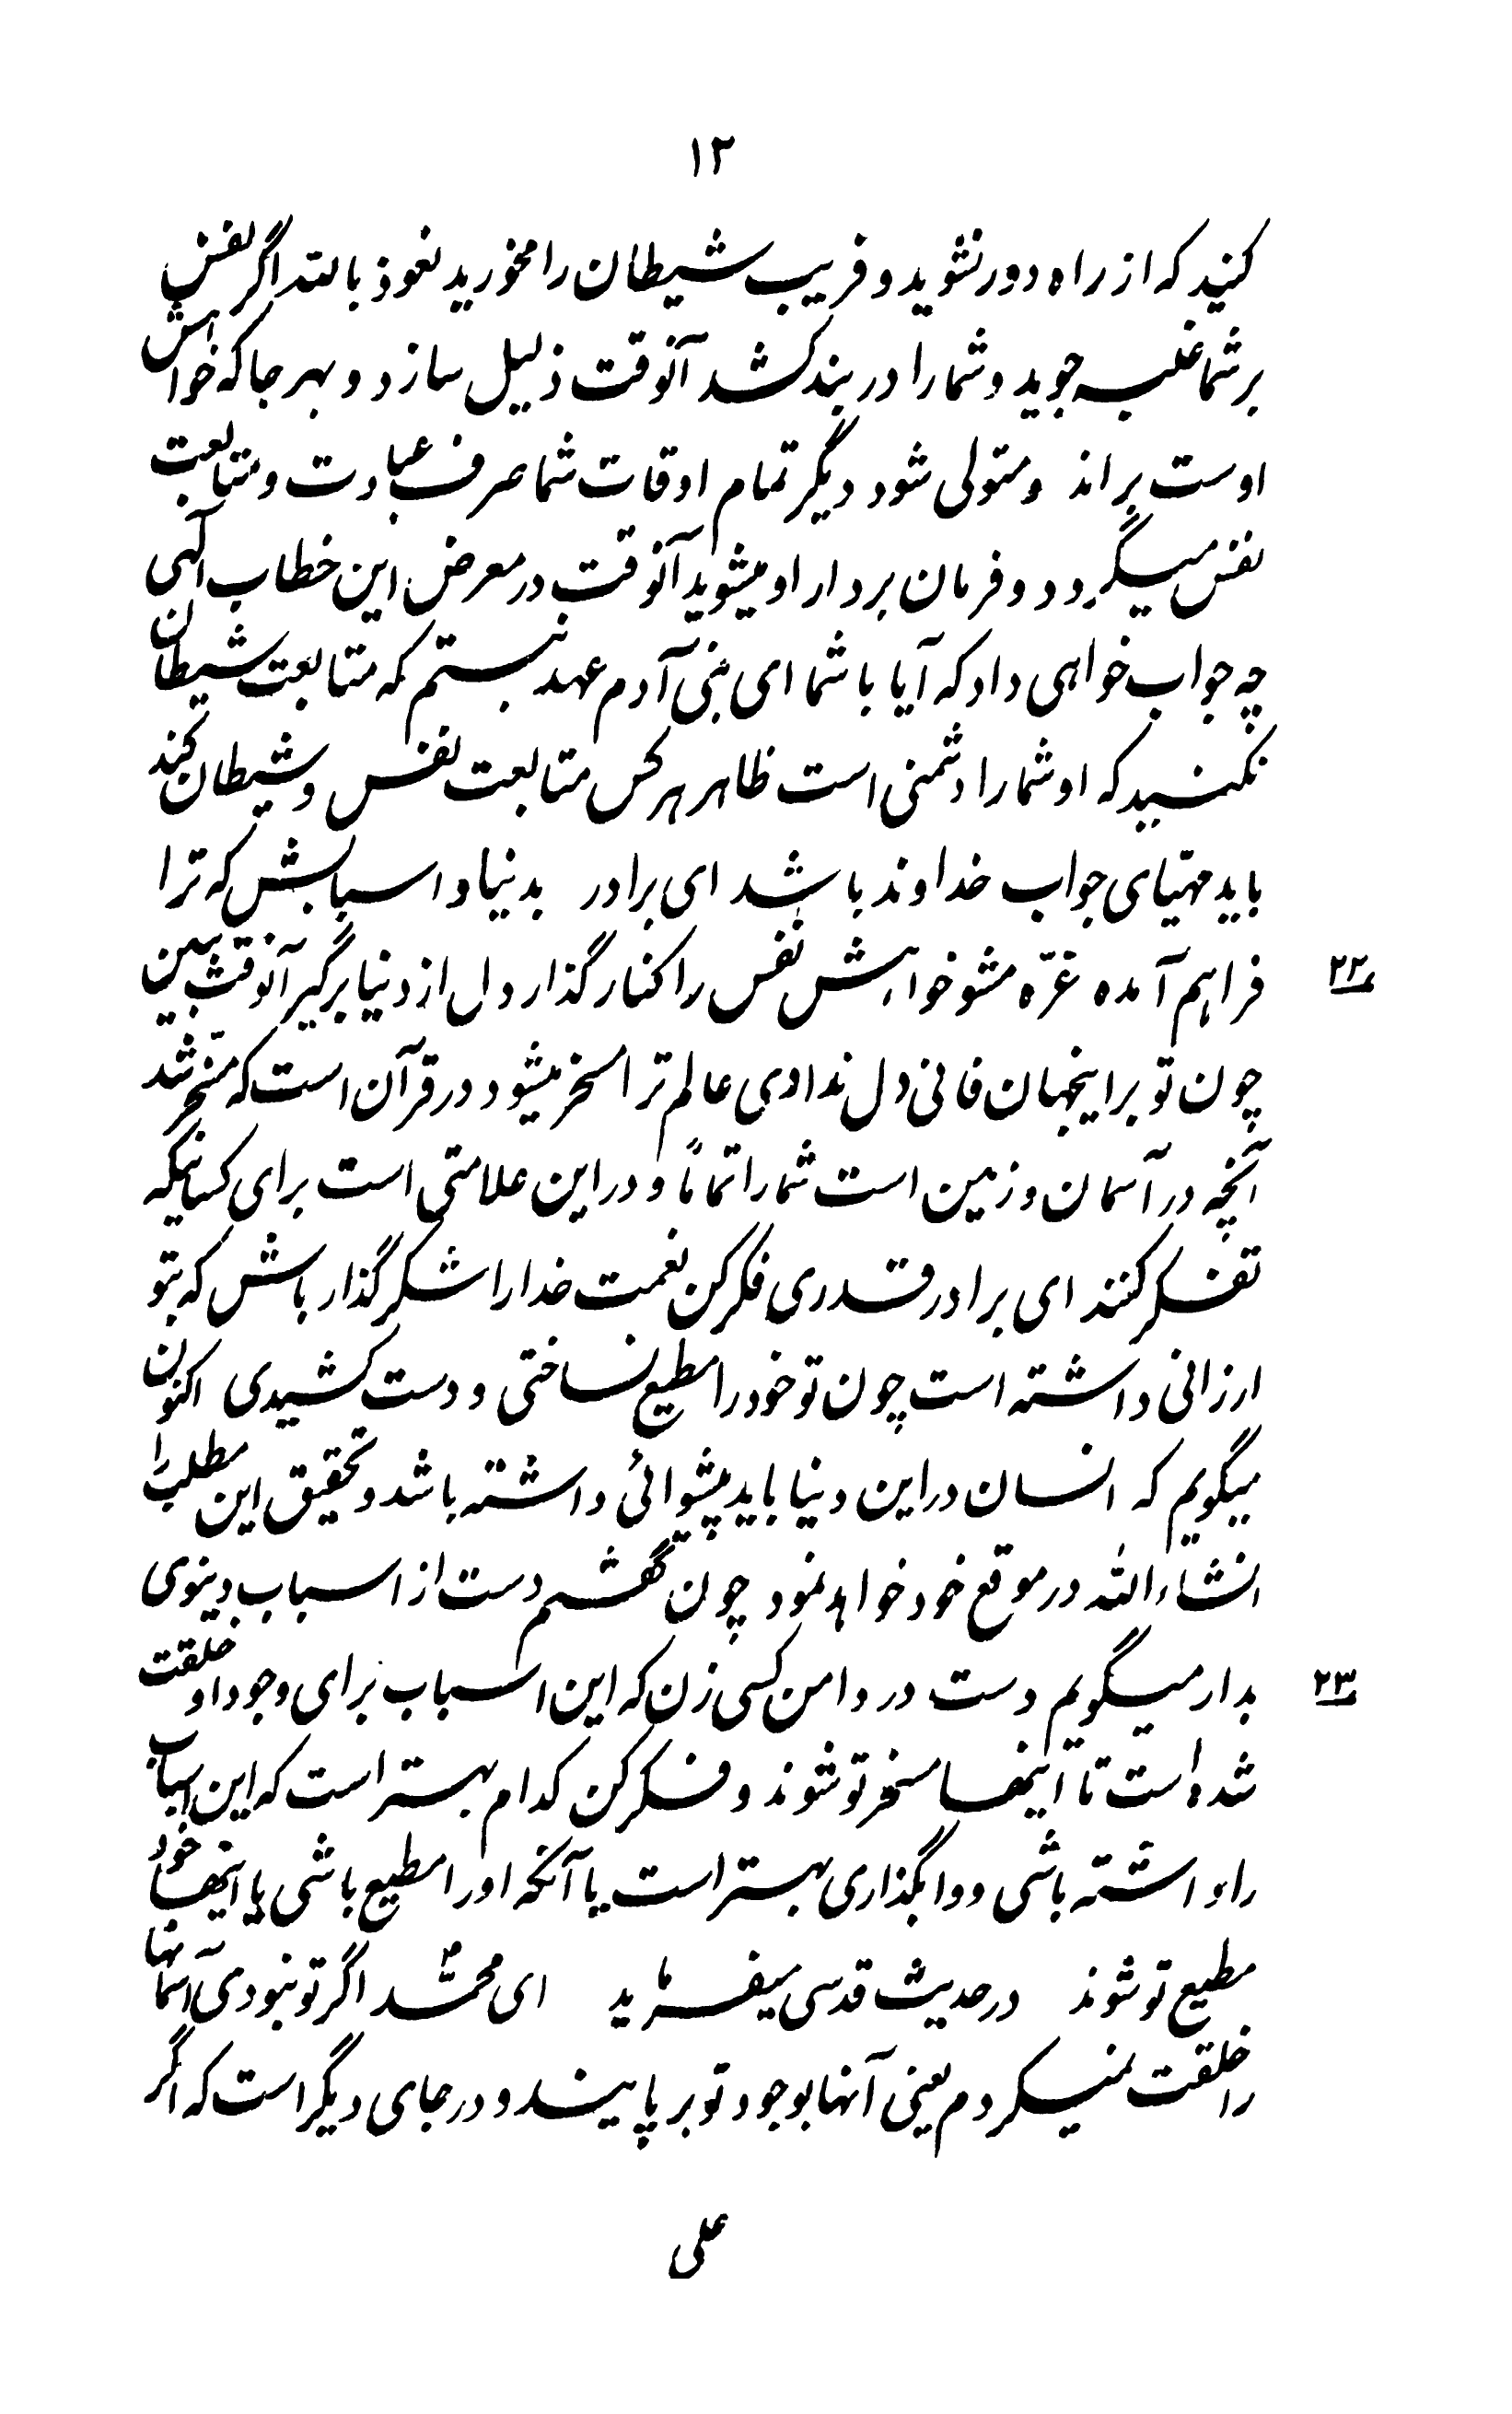 ١٢
کنید که از راه دور نشوید و فریب شیطان را مخورید نعوذ بالله اگر نفس
بر شما غلبه جوید و شما را در بند کشد آنوقت ذلیل سازد و بهر جا که خواهش
اوست براند و متولی شود دیگر تمام اوقات شما صرف عبادت و متابعت
نفس میگردد و فرمان بردار او میشوید آنوقت در معرض این خطاب الهی
چه جواب خواهی داد که آیا با شما ای بنی آدم عهد نبستم که متابعت شیطان
نکنید که او شما را دشمنی است ظاهر هر کس متابعت نفس و شیطان کند
باید مهیای جواب خداوند باشد ای برادر بدنیا و اسبابش که ترا
فراهم آمده غرّه مشو خواهش نفس را کنار گذار دل از دنیا برگیر آنوقت ببین
٢٢
چون تو بر اینجهان فانی دل ندادی عالم ترا مسخر میشود در قرآن است که مسخّر شد
آنچه در آسمان و زمین است شما را تماماً و در این علامتی است برای کسانیکه
تفکر کنند ای برادر قدری فکر کن نعمت خدا را شکر گذار باش که بتو
ارزانی داشته است چون تو خود را مطیع نساختی و دست کشیدی اکنون
میگویم که انسان در این دنیا باید پیشوائی داشته باشد و تحقیق این مطلب را
انشاءالله در موقع خود خواهد نمود چون گفتم دست از اسباب دنیوی
بدار میگویم دست در دامن کسی زن که این اسباب برای وجود او خلقت
٢٣
شده است تا اینها مسخر تو شوند و فکر کن کدام بهتر است که این اسباب
را داشته باشی و وا بگذاری بهتر است یا آنکه او را مطیع باشی یا اینها خود
مطیع تو شوند در حدیث قدسی میفرماید ای محمّد اگر تو نبودی آسمانها
را خلقت نمیکردم یعنی آنها بوجود تو بر پایند و در جای دیگر است که اگر
علی